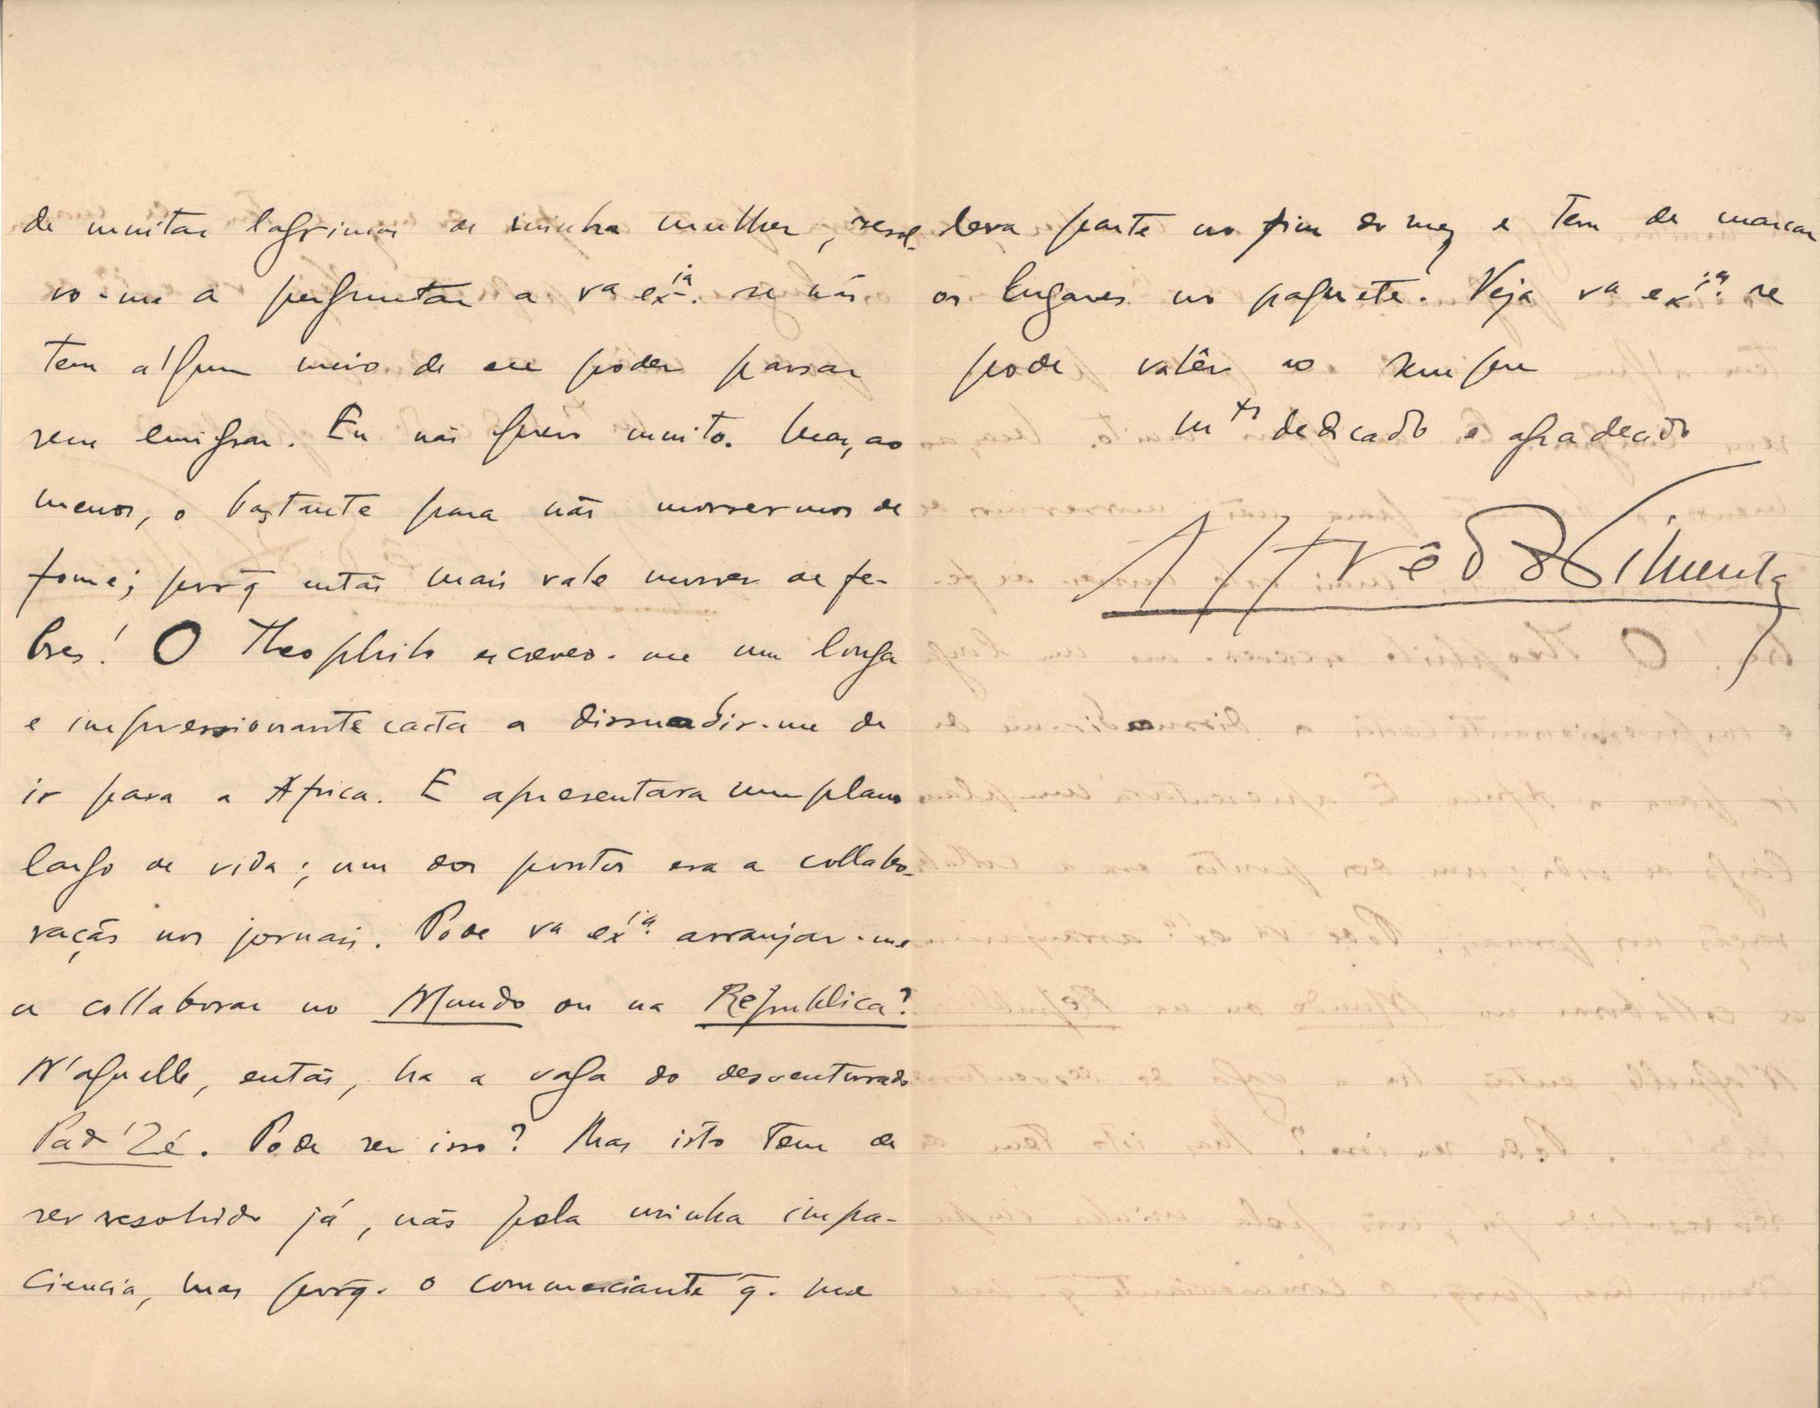 de muitas lagrimas de minha mulher, resol-
vo-me a perguntar a vª exⁱª. se não
tem algum meio de eu poder passar
sem emigrar. Eu não quero muito. Mas, ao
menos, o bastante para não morrermos de
fome; porq̃ então mais vale morrer de fe-
bres! O Theophilo escreveo-me um longa
e impressionante carta a dissuadir-me de
ir para a Africa. E apresentava um plano
largo de vida; um dos pontos era a collabo-
ração nos jornais. Pode vª exⁱª. arranjar-me
a collaborar no Mundo ou na Republica?
N'aquelle, então, ha a vaga do desventurado
Pad'Zé. Pode ser isso? Mas isto tem de
ser resolvido já, não pela minha impa-
ciencia, mas porq̃. o commerciante q̃. me
leva parte no fim do mez e tem de marcar
os lugares no paquete. Veja vª exⁱª. se
pode valêr ao sempre
mᵗᵒ dedicado e agradecido
Alfrêdo Pimenta